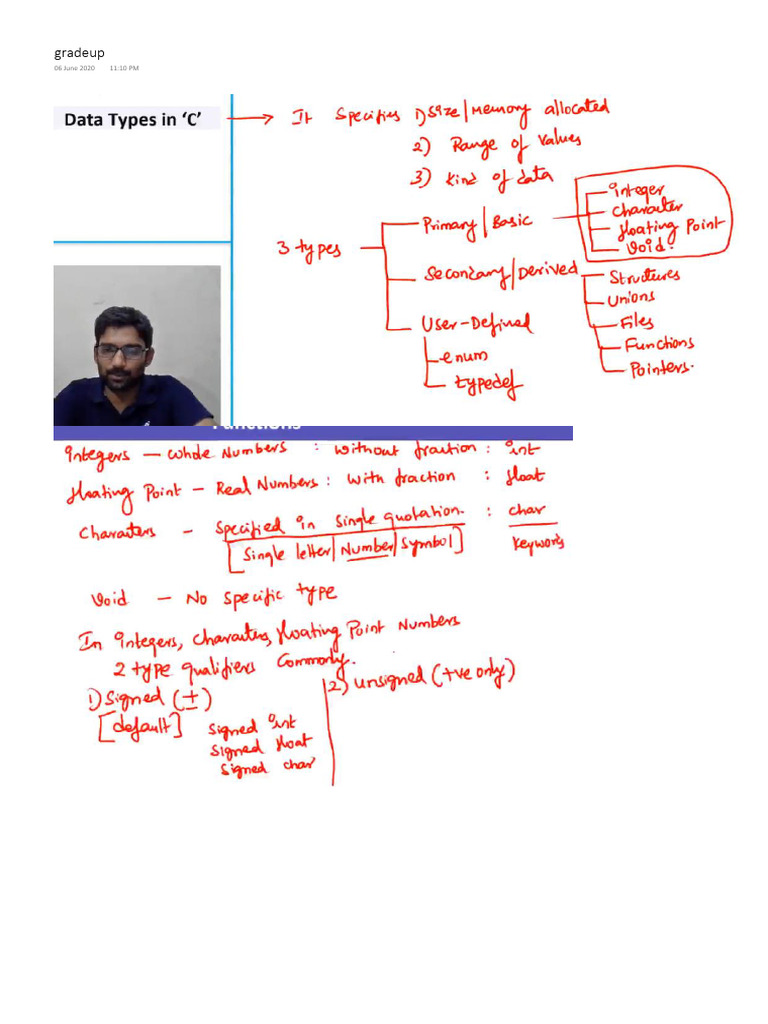 gradeup
06 June 2020 11:10 PM
Data Types in ‘C’
It Specifies 1) Size/Memory allocated
2) Range of Values
3) Kind of data
3 types
Primary/Basic
Integer
Character
floating Point
Void.
Secondary/Derived
Structures
Unions
Files
Functions
Pointers.
User-Defined
enum
typedef
Functions
Integers – Whole Numbers : Without fraction : int
floating Point – Real Numbers : With fraction : float
Characters – Specified in Single quotation. : char
[Single letter/Number/Symbol] Keywords
Void – No Specific type
In Integers, Characters, floating Point Numbers
2 type qualifiers Commonly.
1) Signed (±)
[default]
Signed int
Signed float
Signed char
2) unsigned (+ve only)